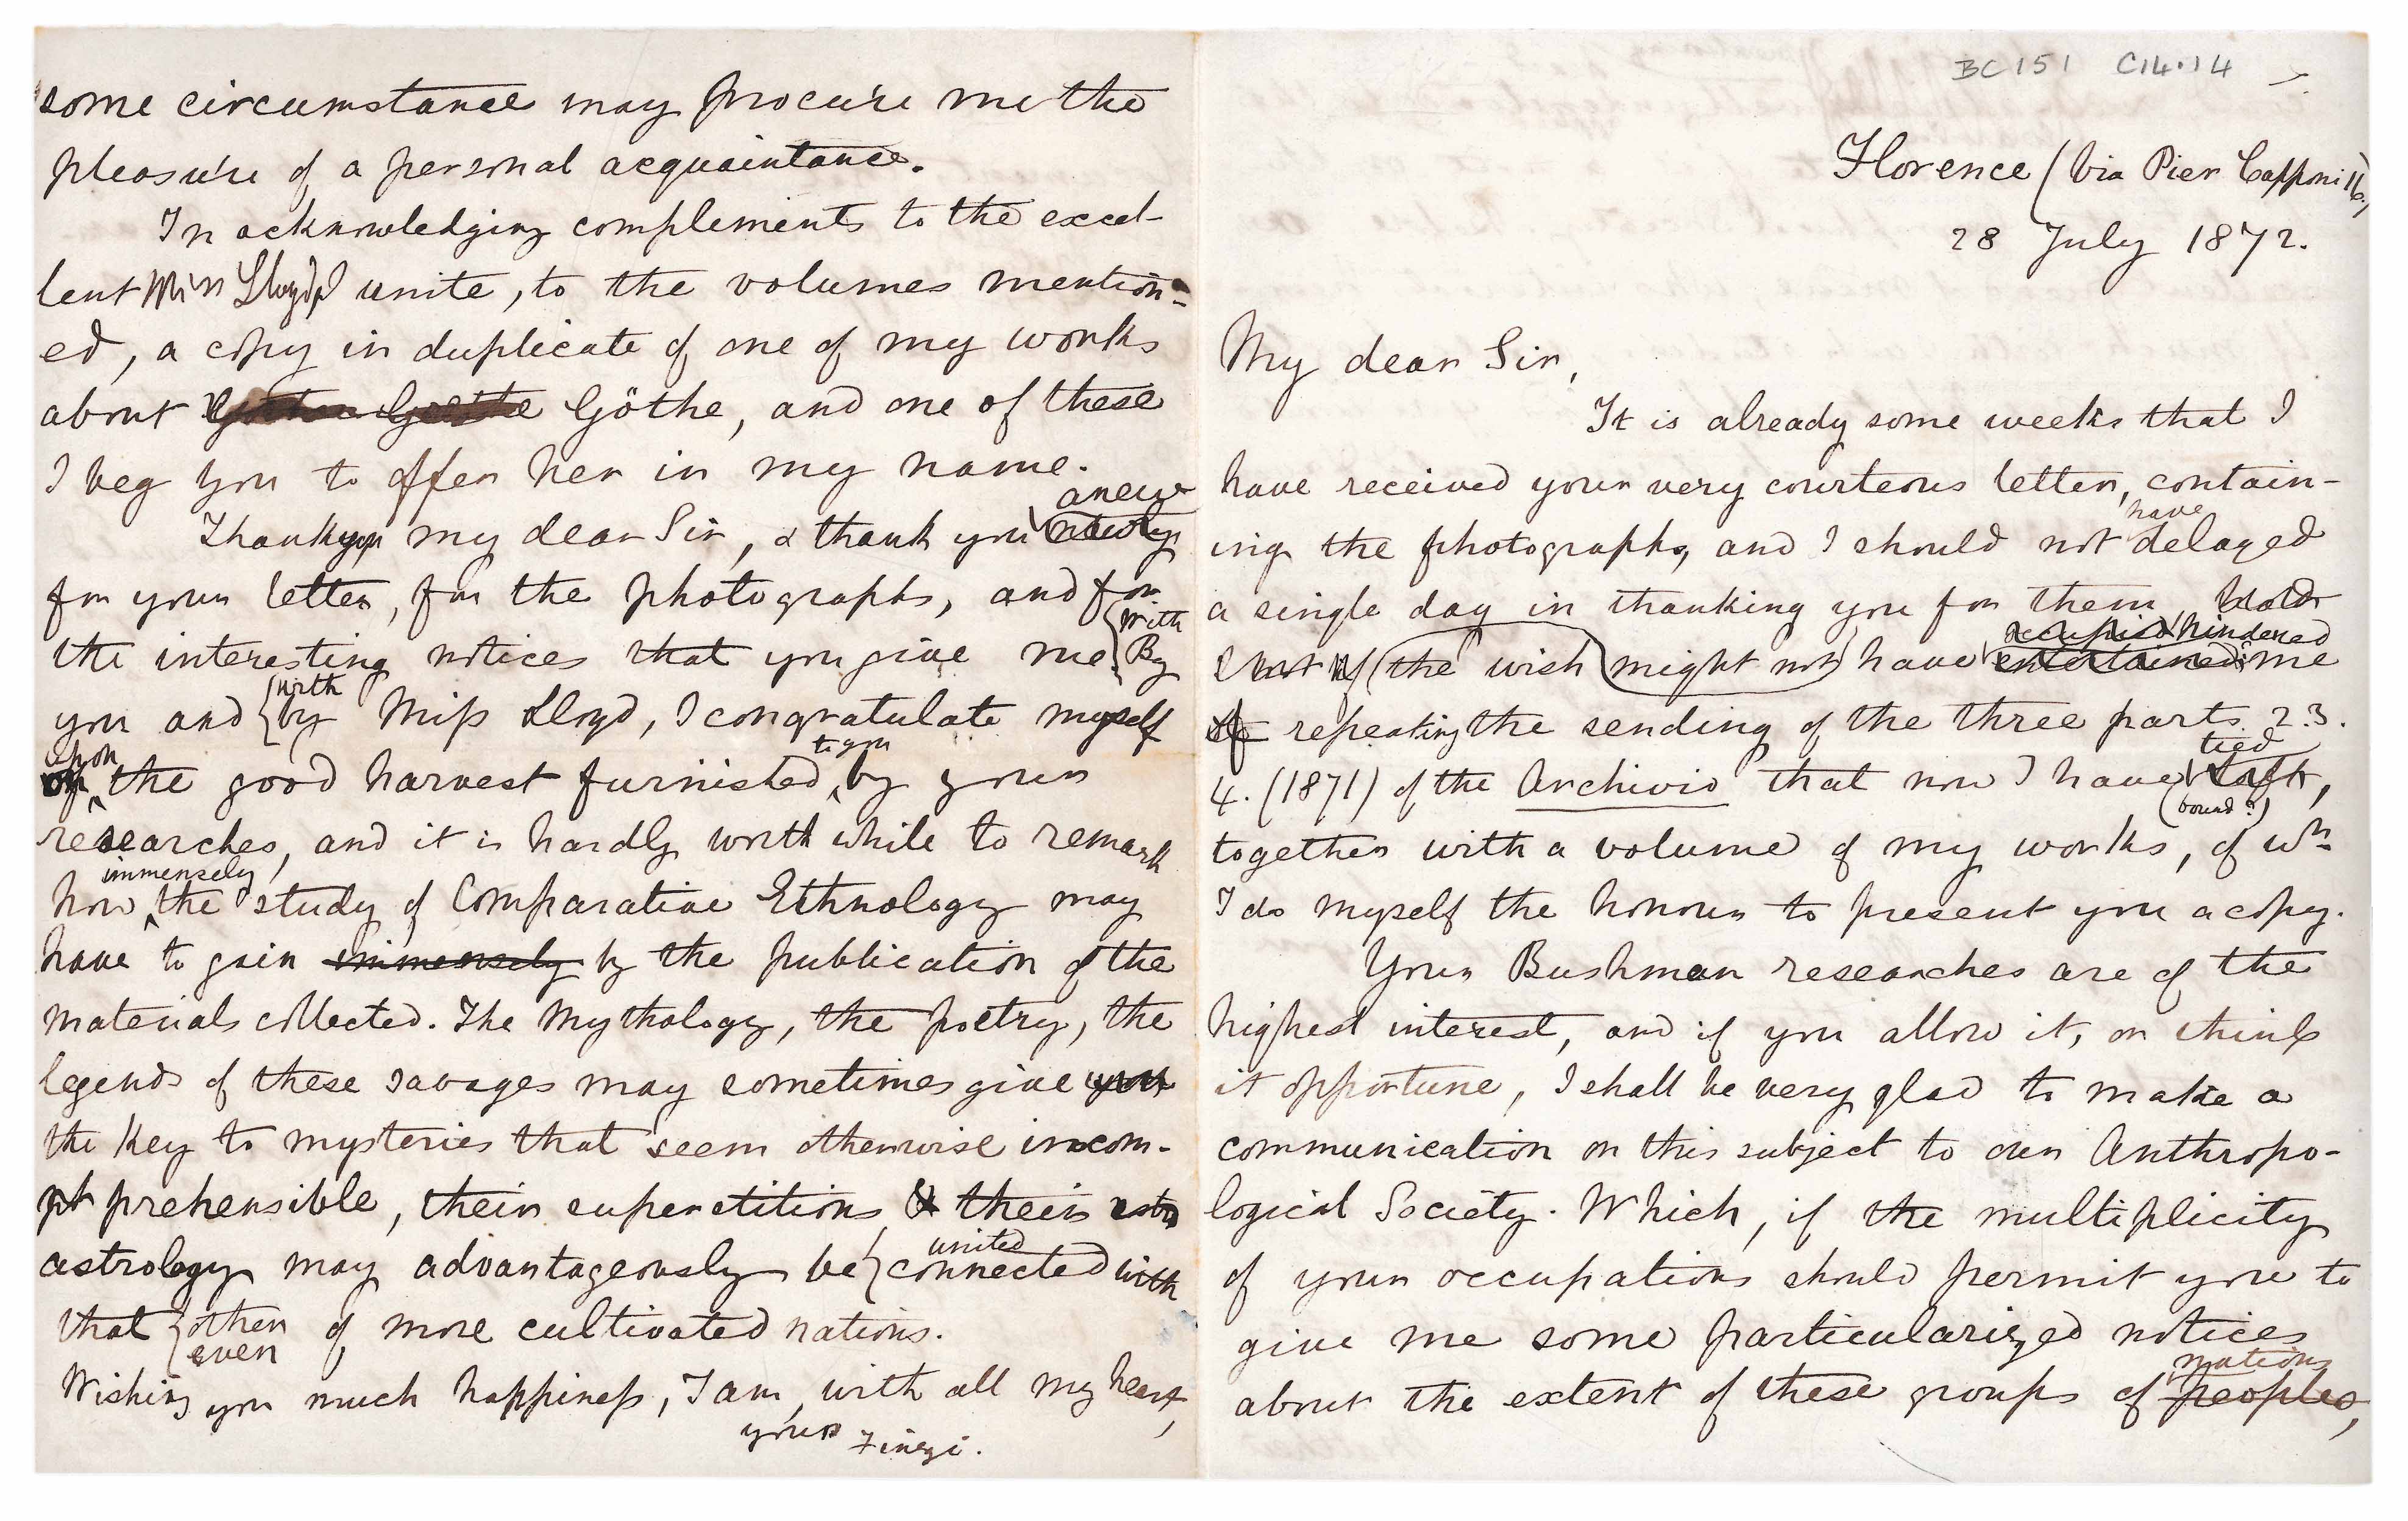 BC 151 C14.14
Florence (Via Pier Capponi 16.)
28 July 1872.
My dear Sir,
It is already some weeks that I
have received your very courteous letter, contain-
ing the photographs, and I should not have delayed
a single day in thanking you for them,
if the wish might not have occupied hindered entertained me
repeating the sending of the three parts 2. 3.
4. (1871) of the Archivio that now I have tied left, (bound?)
together with a volume of my works, of wh
I do myself the honour to present you a copy.
Your Bushman researches are of the
highest interest, and if you allow it, or think
it opportune, I shall be very glad to make a
communication on this subject to our Anthropo-
logical Society. Which, if the multiplicity
of your occupations should permit you to
give me some particularized notices
about the extent of these groups of nations peoples,
some circumstance may procure me the
pleasure of a personal acquaintance.
In acknowledging complements to the excel-
lent Miss Lloyd, I unite, to the volumes mention-
ed, a copy in duplicate of one of my works
about Goethe Göthe, and one of these
I beg you to offer her in my name.
Thank you my dear Sir, & thank you anew newly
for your letter, for the photographs, and for
the interesting notices that you give me. With By
you and with by Miss Lloyd, I congratulate myself
upon the good harvest furnished to you by your
researches, and it is hardly worth while to remark
how immensely the study of Comparative Ethnology may
have to gain immensely by the publication of the
materials collected. The Mythology, the poetry, the
legends of these savages may sometimes give you
the key to mysteries that seem otherwise incom-
prehensible, their superstitions & their astro
astrology may advantageously be united connected with
that other even of more cultivated nations.
Wishing you much happiness, I am, with all my heart,
yours Finzi.